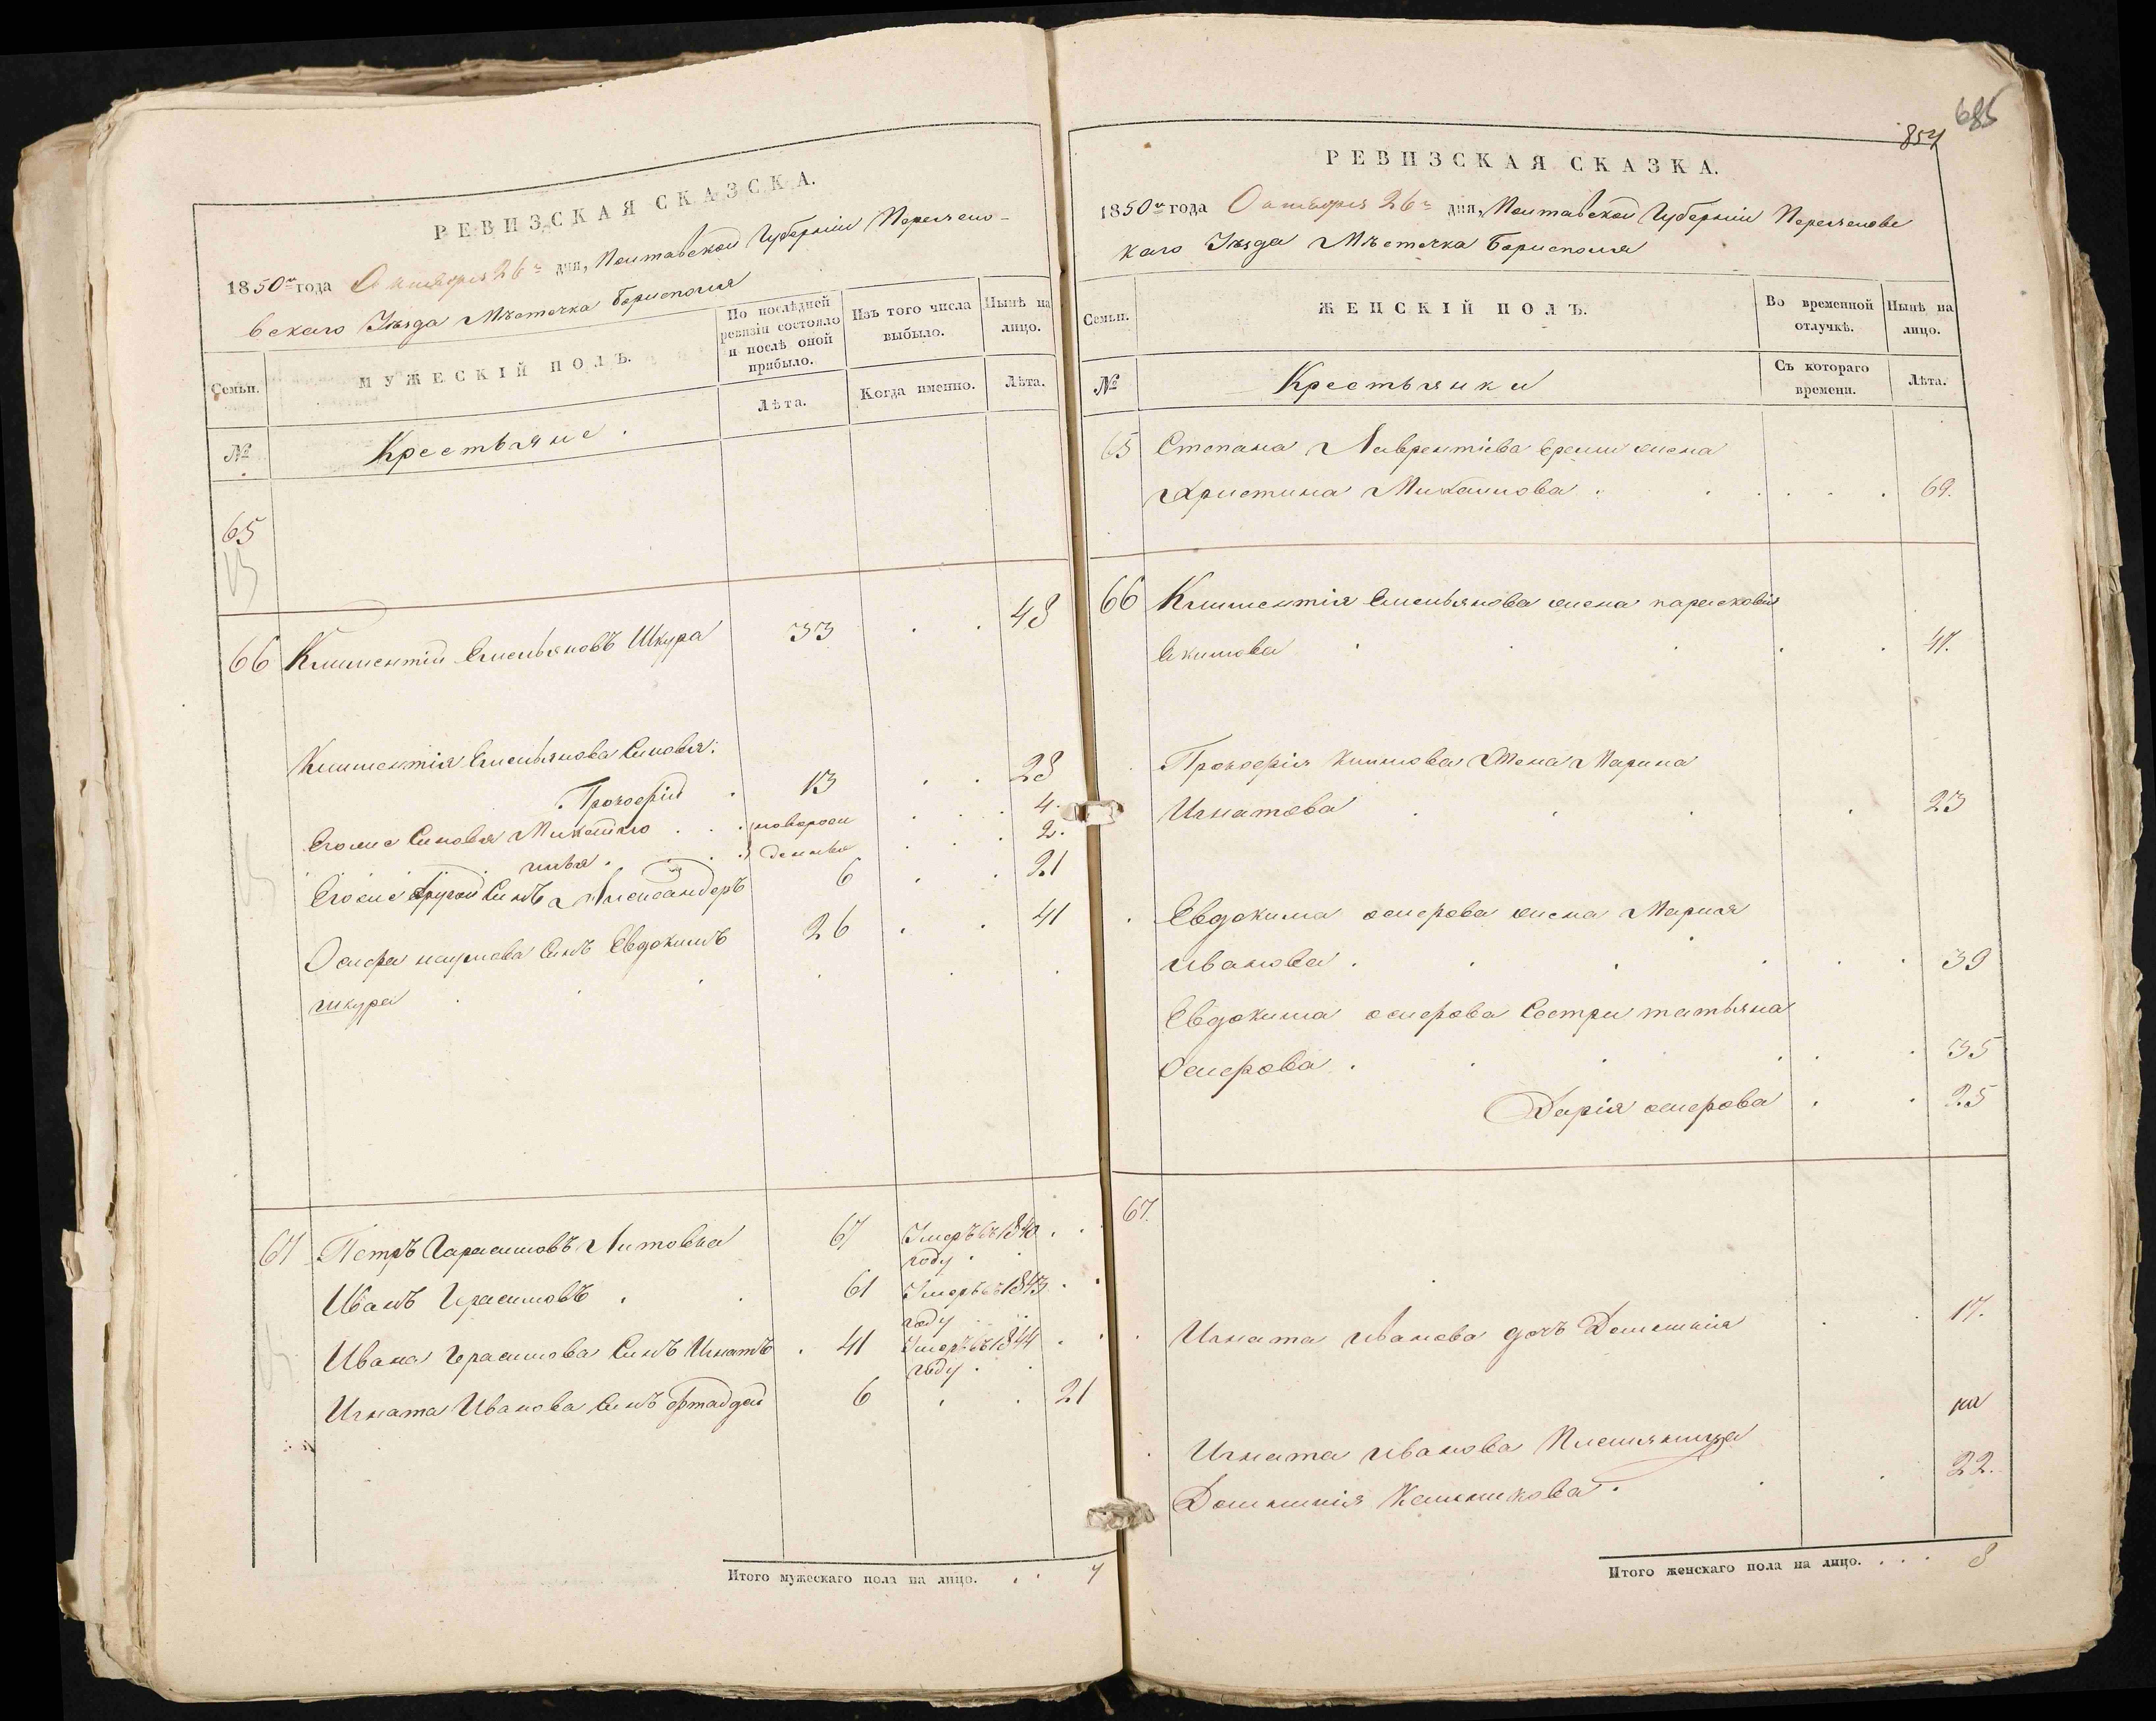 РЕВИЗСКАЯ СКАЗСКА.
1850го года Октября 26го дня, Полтавской Губерніи Переясло-
вскаго Уѣзда Мѣстечка Борисполя
Семьи.
МУЖЕСКІЙ ПОЛЪ.
По послѣдней ревизіи состояло и послѣ оной прибыло.
Изъ того числа выбыло.
Нынѣ на лицо.
№
Крестьяне.
Лѣта.
Когда именно.
Лѣта.
65
66 Климентій Емельяновъ Шкура 33 . . 48
Климентія Емельянова Синовья:
Прокофій . 13 . . 28
Егоже Синовья Михайло . . . новорож . . . 4.
Илья . . . денные . . . 2.
Егоже другой Синъ Александеръ 6 . . 21
Осифа Наумова Синъ Евдокимъ 26 . . 41
шкура
67 Петръ Гарасимовъ Литовка 67 Умеръ въ 1840 . .
году .
Иванъ Герасимовъ . . 61 Умеръ въ 1843 . .
году
Ивана Герасимова Синъ Игнатъ . 41 Умеръ въ 1844 . .
году .
Игната Иванова Синъ Фтаддей 6 . . 21
Итого мужескаго пола на лицо. . . 7
685
854
РЕВИЗСКАЯ СКАЗКА.
1850го года Октября 26го дня, Полтавской Губерніи Переяслове
каго Уѣзда Мѣстечка Борисполя
Семьи.
ЖЕНСКІЙ ПОЛЪ.
Во временной отлучкѣ.
Нынѣ на лицо.
№
Крестьянки
Съ котораго времени.
Лѣта.
65 Степана Лаврентіева жена
Христина Михайлова . . . . . 69.
66 Климентія Емельянова жена парасковія
Екимова . . . . . 47.
Прокофія Климова Жена Марина
Игнатова . . . . 23
Евдокима осифова жена Марья
Иванова . . . . . 39
Евдокима осифова Сестри татьяна
Осифова . . . . . . 35
Дарія осифова . . 25
67.
Игната Иванова дочь Домникія . . 17.
на
Игната Иванова Племянница
Домникія . . . 22.
Итого женскаго пола на лицо. . . . 8